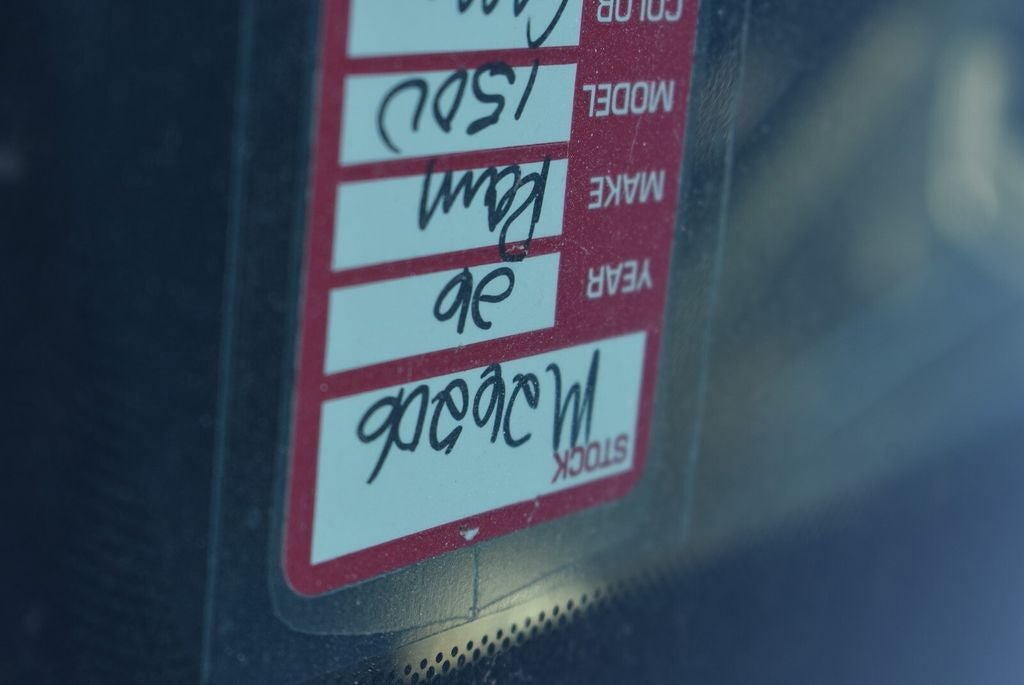 STOCK M26206
YEAR 26
MAKE Ram
MODEL 1500
COLOR